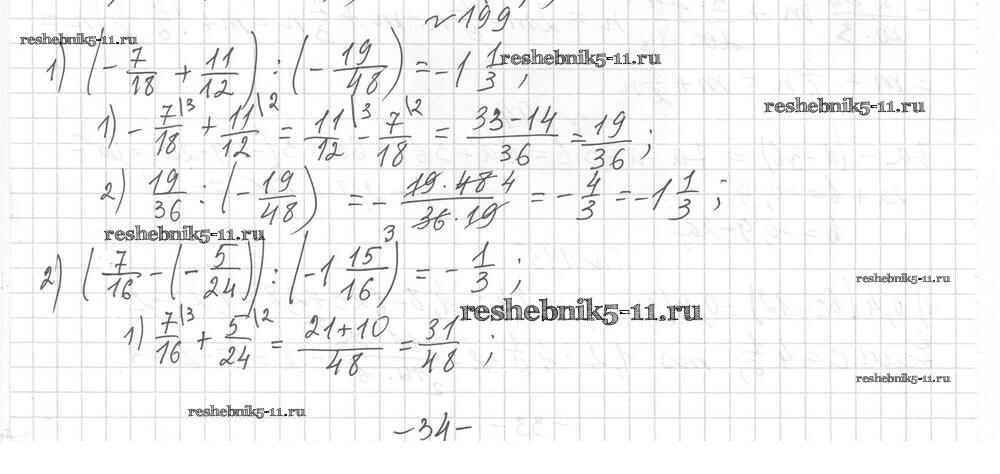 №199
reshebnik5-11.ru
1) (-7/18 + 11/12) : (-19/48) = -1 1/3 ;
reshebnik5-11.ru
reshebnik5-11.ru
1) -7/18\3 + 11/12\2 = 11/12\3 - 7/18\2 = 33-14/36 = 19/36 ;
2) 19/36 : (-19/48) = - 19·48 4/3 36·19 = -4/3 = -1 1/3 ;
reshebnik5-11.ru
2) (7/16 - (-5/24)) : (-1 15/16) = -1/3 ;
reshebnik5-11.ru
reshebnik5-11.ru
1) 7/16\3 + 5/24\2 = 21+10/48 = 31/48 ;
reshebnik5-11.ru
reshebnik5-11.ru
-34-